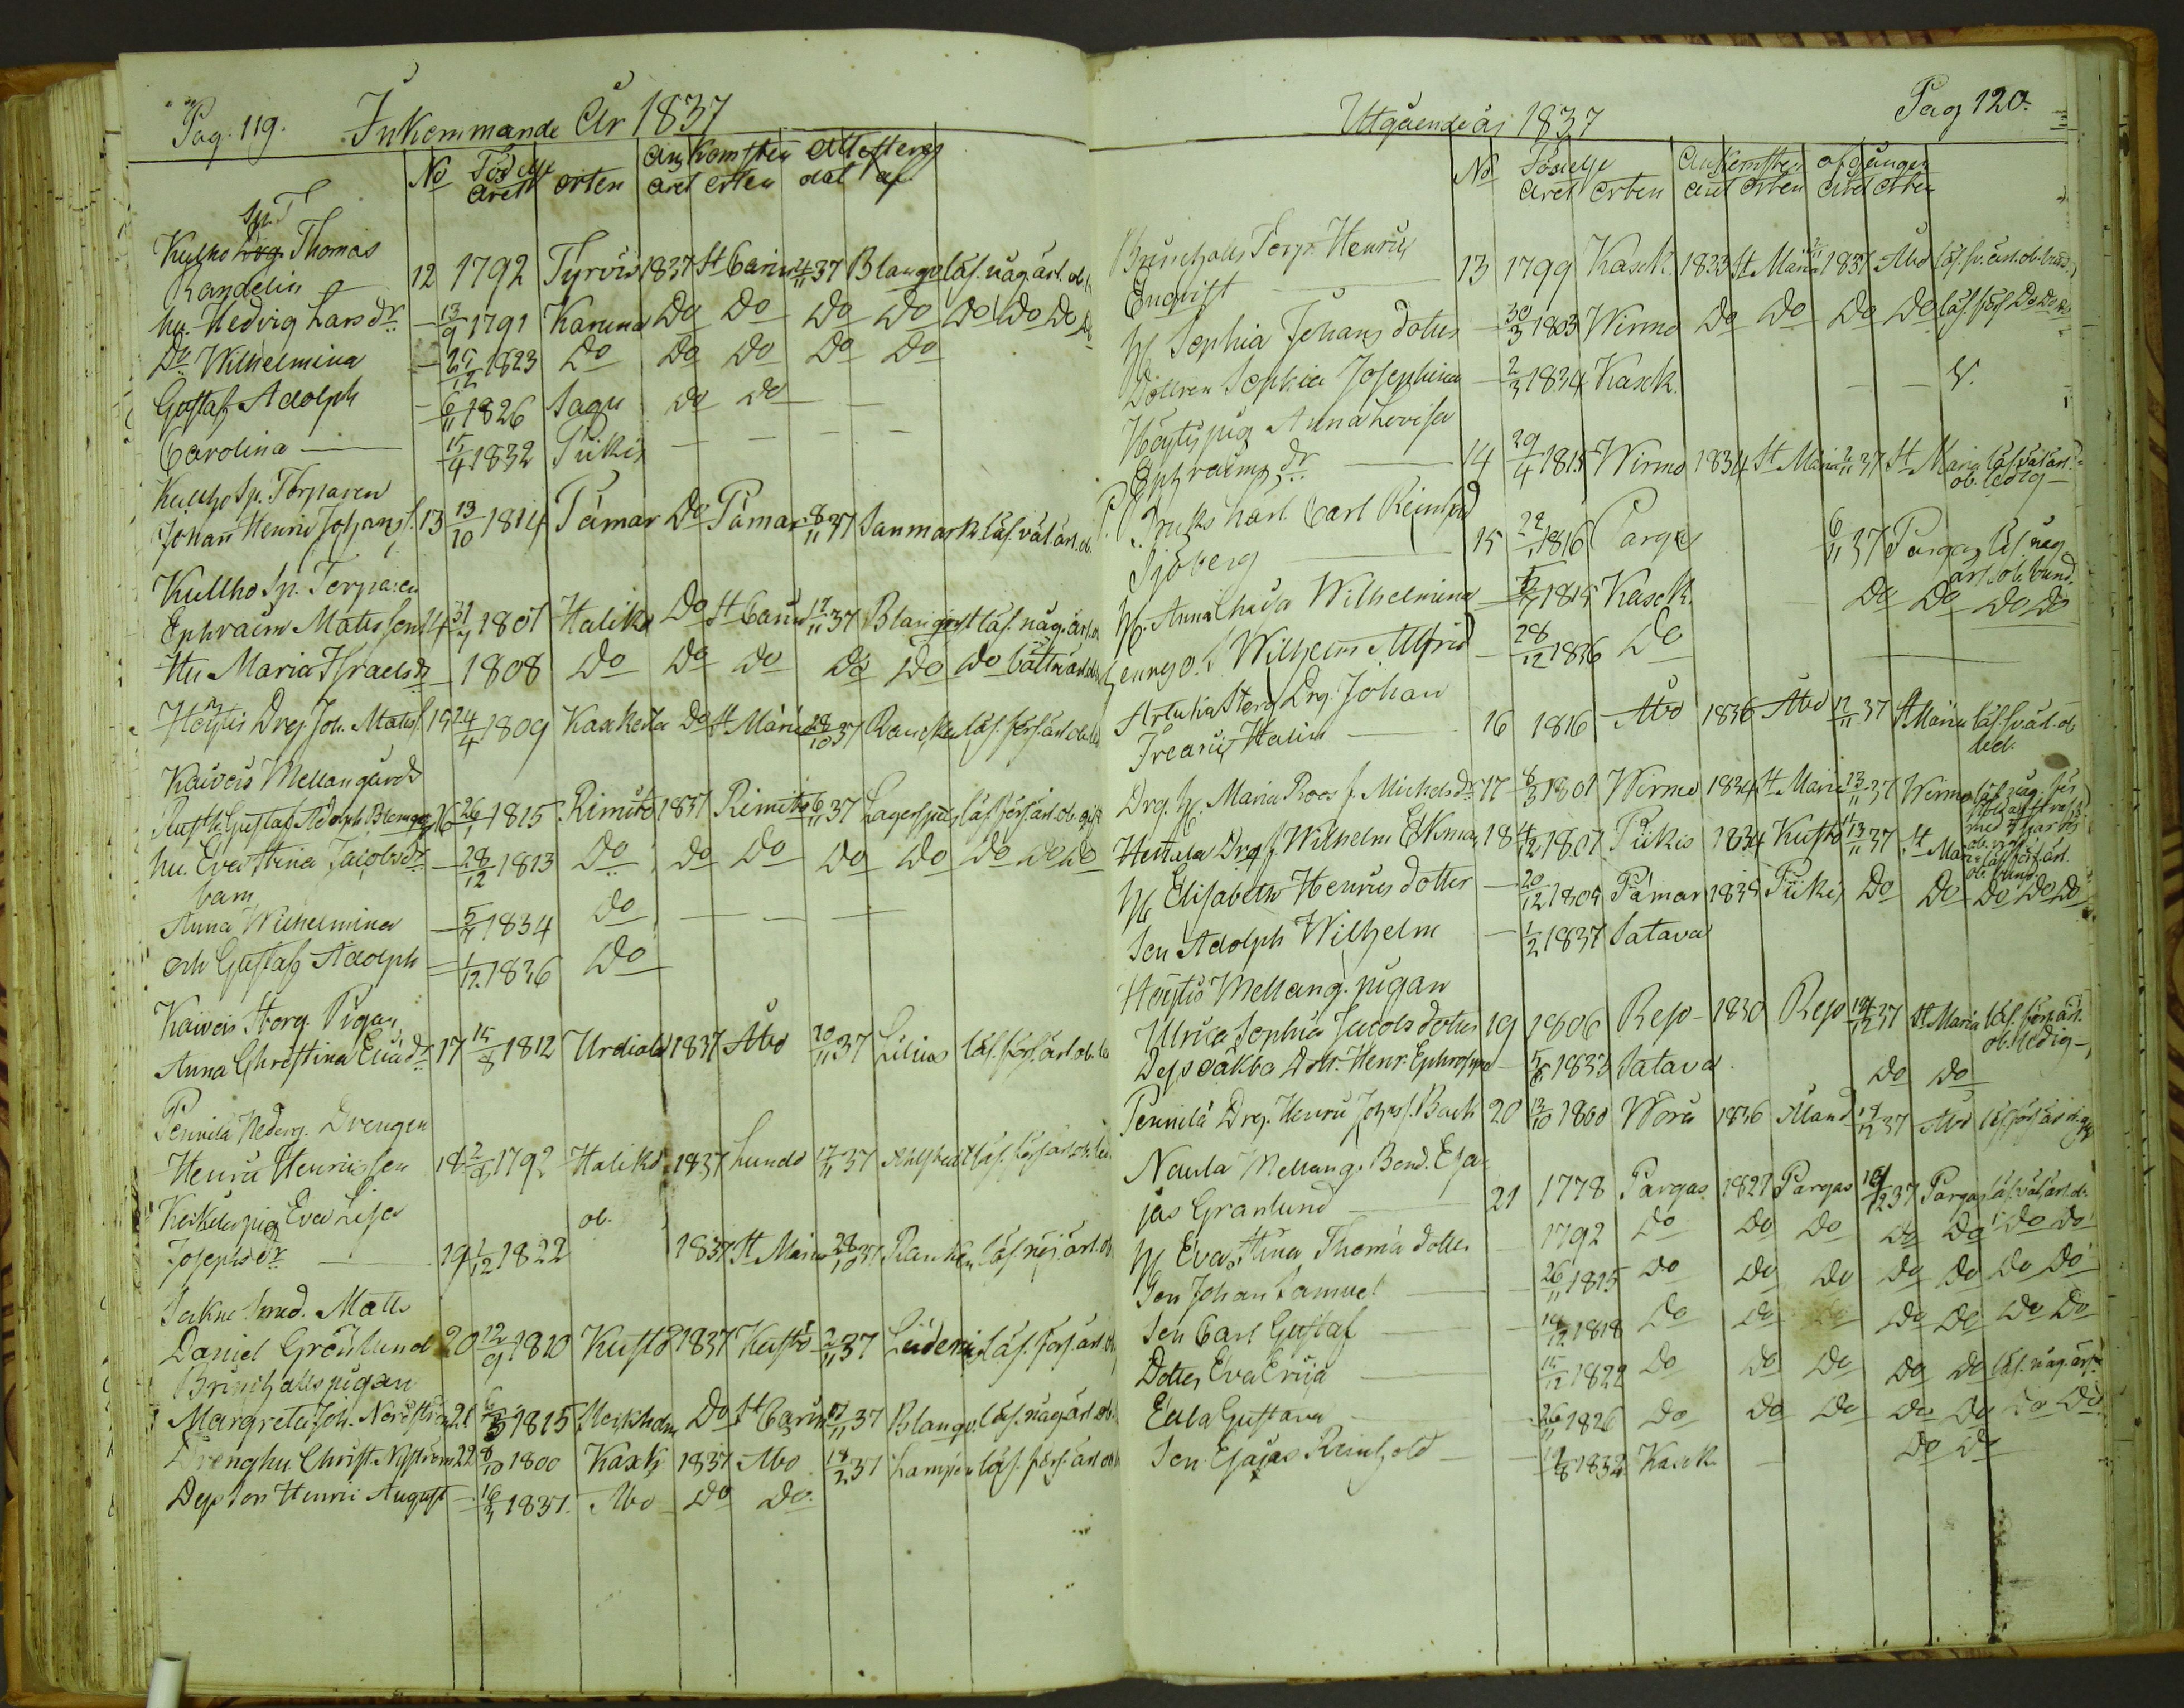 Pag. 119. Inkommande År 1837
No Födelse året orten ankomsten året orten attesterne dat af
Sp. T
Kulho Drg. Thomas
Randelin 12 1792 Tyrvis 1837 St Carin 21/11 37 Blangv läs. någ. ärl. ob.
hu. Hedvig Larsdr - 13/9 1791 Karuna Do Do Do Do Do Do Do
Do Wilhelmina - 29/12 1823 Do Do Do Do Do
Gustaf Adolph - 6/11 1826 Sagu Do Do
Carolina - 15/4 1832 Piikis
Kullho Sp. Torparen
Johan Henric Johanss. 13 13/10 1814 Pämar Do Pämar 8/11 37 Sanmark läs. väl. ärl. ob.
Kullho Sp. Torparen
Ephraim Matsson 14 31/7 1801 Haliko Do St Carin 17/11 37 Blangvst läs. någ. ärl.
Hu Maria Israelsdr - 1808 Do Do Do Do Do Do bättre
Höytis Drg Joh. Matss. 15 24/4 1809 Kaskerta Do St Märiæ 28/10 37 Rancken läs. förs. ärl. ob.
Kaivois Mellangårds
Rusth. Gustaf Adolph Blomqv 16 26/1 1815 Rimito 1837 Rimito 6/11 37 Lagerspetz läs. förs. ärl. ob. gift
hu. Eva Stina Jacobsdr - 28/12 1813 Do Do Do Do Do Do Do Do
barn
Anna Wilhelmina - 5/7 1834 Do
och Gustaf Adolph - 1/12 1836 Do
Kaivois Storg. Pigan
Anna Christina Ericdr 17 15/8 1812 Urdiala 1837 Åbo 20/11 37 Lilius läs. förs. ärl. ob.
Pennilä Nederg. Drengen
Henric Henricsson 18 2/8 1792 Haliko 1837 Lundo 17/11 37 Ahlstedt läs. förs. ärl. ob.
Keskelä pig Eva Lisa ob.
Josephsdr 19 1/12 1822 1837 St Märiæ 28/10 37 Rancken läs. nöj. ärl. ob.
Jakne smed. Matts
Daniel Grönlund 20 12/9 1810 Kustö 1837 Kustö 2/11 37 läs. förs. ärl.
Brinkhalls pigan
Margreta Joh. Nordström 21 6/3 1815 Merkholm Do St Carin 17/11 37 Blangv. läs. någ. ärl. ob.
Drenghu. Christ. Nyström 22 8/10 1800 Kaxk. 1837 Åbo 18/2 37 Lampen läs. förs. ärl. ob.
Dess son Henric August - 16/3 1837 Åbo Do Do
Utgående år 1837 Pag 120.
No Födelse året orten Ankomsten året orten afgången året orten
Brinckalls Torp. Henric
Enqvist 13 1799 Kasck. 1833 St Märiæ 1837 Åbo läs. sv. ärl. ob. bund.
H. Sophia Johans dotter - 30/3 1803 Wirmo Do Do Do Do läs. förs Do Do
Dottren Sophia Josephina - 2/3 1834 Kasck.
Höytis pig Anna Lovisa
Ephraims dr 14 29/4 1815 Wirmo 1834 St Märiæ 2/11 37 St Mariæ läs. väl ärl.
ob. ledig
Bruks karl. Carl Reinhold
Sjöberg 15 22/11 1816 Pargas 6/11 37 Pargas läs. någ
ärl. ob. bund.
H. Anna Lovisa Wilhelmina 5/7 1815 Kasck. Do Do Do Do
Wilhelm Alfrid - 28/12 1836 Do
Artukas Storg Drg. Johan
Frearic Halin 16 1816 Åbo 1836 Åbo 12/11 37 St Märiæ läs. sv. ärl. ob
led.
Drg. H. Maria Roos f. Michelsdr 17 8/3 1801 Wirmo 1834 St Märiæ 13/11 37 Wirmo läs. någ.
Hertala Drg f. Wilhelm Ekman 18 4/12 1807 Piikis 1834 Kustö 13/11 37 St Märiæ läs. förs. ärl.
ob. bund.
H. Elisabeth Henrics dotter - 20/12 1805 Pämar 1835 Piikis Do Do Do Do Do
Son Adolph Wilhelm - 1/2 1837 Satava
Höytis Mellang. pigan
Ulrica Sophia Jacobs dotter 19 1806 Reso 1830 Reso 14/12 37 St Maria läs. förs. ärl.
ob. ledig
Dess oäkta Dottr. Henr. Ephrosyne - 5/6 1833 Satava Do Do
Pennilä Drg. Henric Johss. Back 20 13/10 1800 Wörå 1836 Åland 18/12 37 Åbo läs. förs. ärl. ob. g
Naula Mellang. Bond. Esa-
jas Granlund 21 1778 Pargas 1821 Pargas 19/12 37 Pargas läs. väl. ärl. ob.
H. Eva Stina Thomä dotter 1792 Do Do Do Do Do Do Do
Son Johan Samuel - 26/11 1815 Do Do Do Do Do Do Do
Son Carl Gustaf - 19/12 1818 Do Do Do Do Do Do Do
Dotter Eva Erica - 15/12 1822 Do Do Do Do Do läs. någ. ärl.
Edla Gustava - 26/11 1826 Do Do Do Do Do Do Do
Son Esajas Reinhold - 19/8 1832 Kasck Do Do